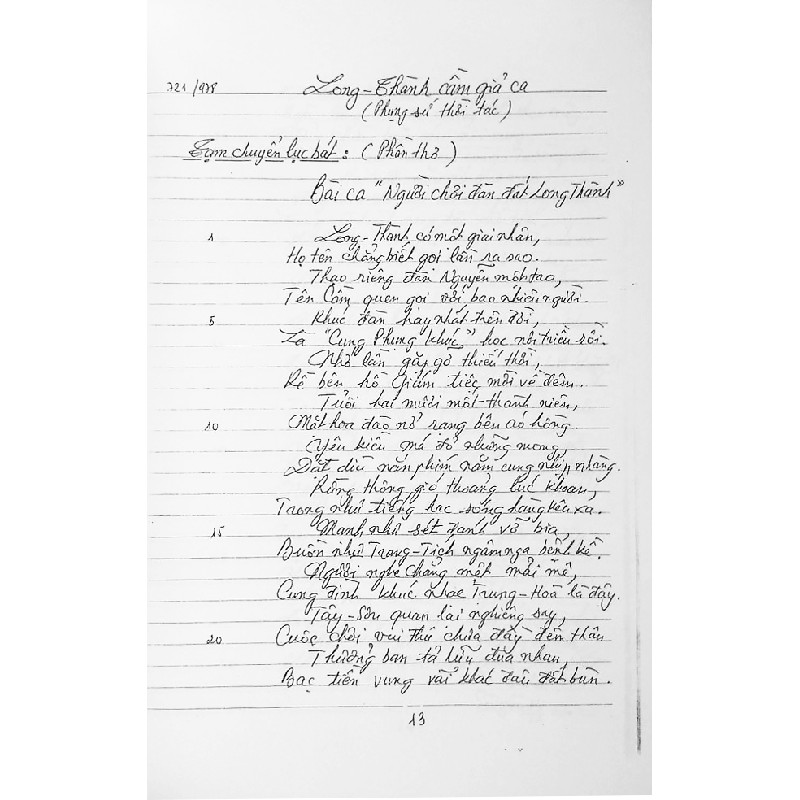 721/978
Long-Thành cầm giả ca
(Phụng sứ thời tác)
Tạm chuyển lục bát: (Phần thơ)
Bài ca "Người chơi đàn đất Long Thành"
1 Long-Thành có một giai nhân,
Họ tên chẳng biết gọi lần ra sao.
Thạo riêng đàn Nguyễn một tao,
Tên Cầm quen gọi với bao nhiêu người.
5 Khúc đàn hay nhất trên đời,
Là "Cung Phụng khúc" học nơi triều rồi.
Nhớ lần gặp gỡ thiếu thời,
Rõ bên hồ Giám tiệc mời về đêm.
Tuổi hai mươi mốt thanh niên,
10 Mặt hoa đào nở rạng bên áo hồng.
Yêu kiều má đỏ những mong,
Dặt dìu năm phím năm cung nhịp nhàng.
Rồng thông gió thoảng lúc khoan,
Trong như tiếng hạc sống đang kêu xa.
15 Mạnh như sét đánh vỡ bia,
Buồn như Trang-Tích ngâm nga bệnh kề.
Người nghe chẳng một mải mê,
Cung đình khúc nhạc Trung-Hoà là đây.
Tây-Sơn quan lại nghiêng say,
20 Cuộc chơi vui thú chưa đầy đến thâu
Thưởng ban tả hữu đua nhau,
Bạc tiền vung vãi khác đâu đất bùn.
13